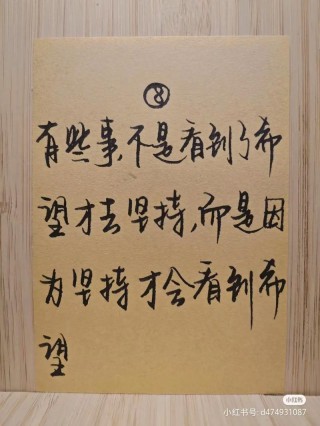 ⑧
有些事,不是看到了希
望才去坚持,而是因
为坚持才会看到希
望
小红书
小红书号: d474931087